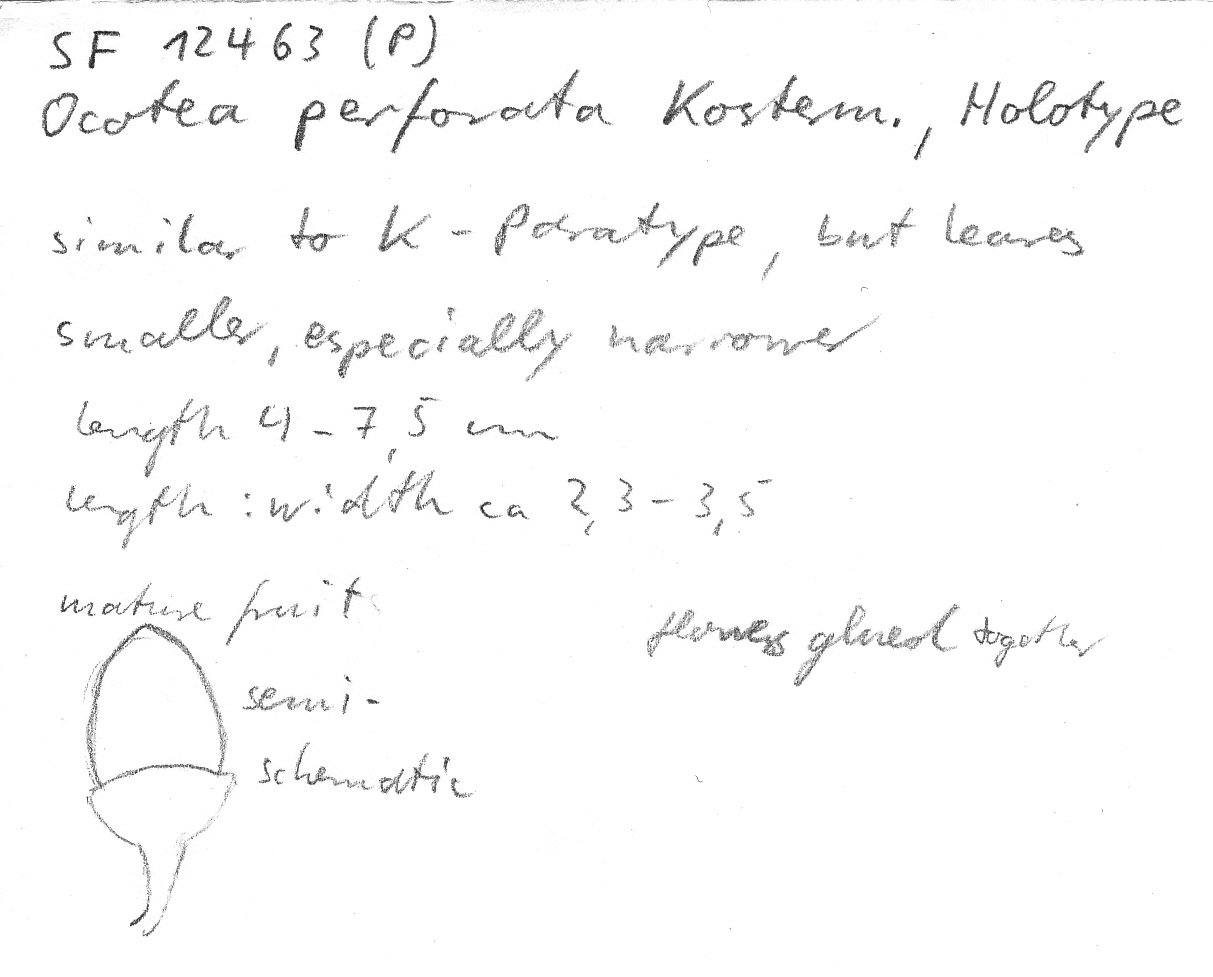 SF 12463 (P)
Ocotea perforata Kosterm., Holotype
similar to K - Paratype, but leaves
smaller, especially narrower
length 4 - 7,5 cm
length : width ca 2,3 - 3,5
mature fruit
flowers glued together
semi-
schematic